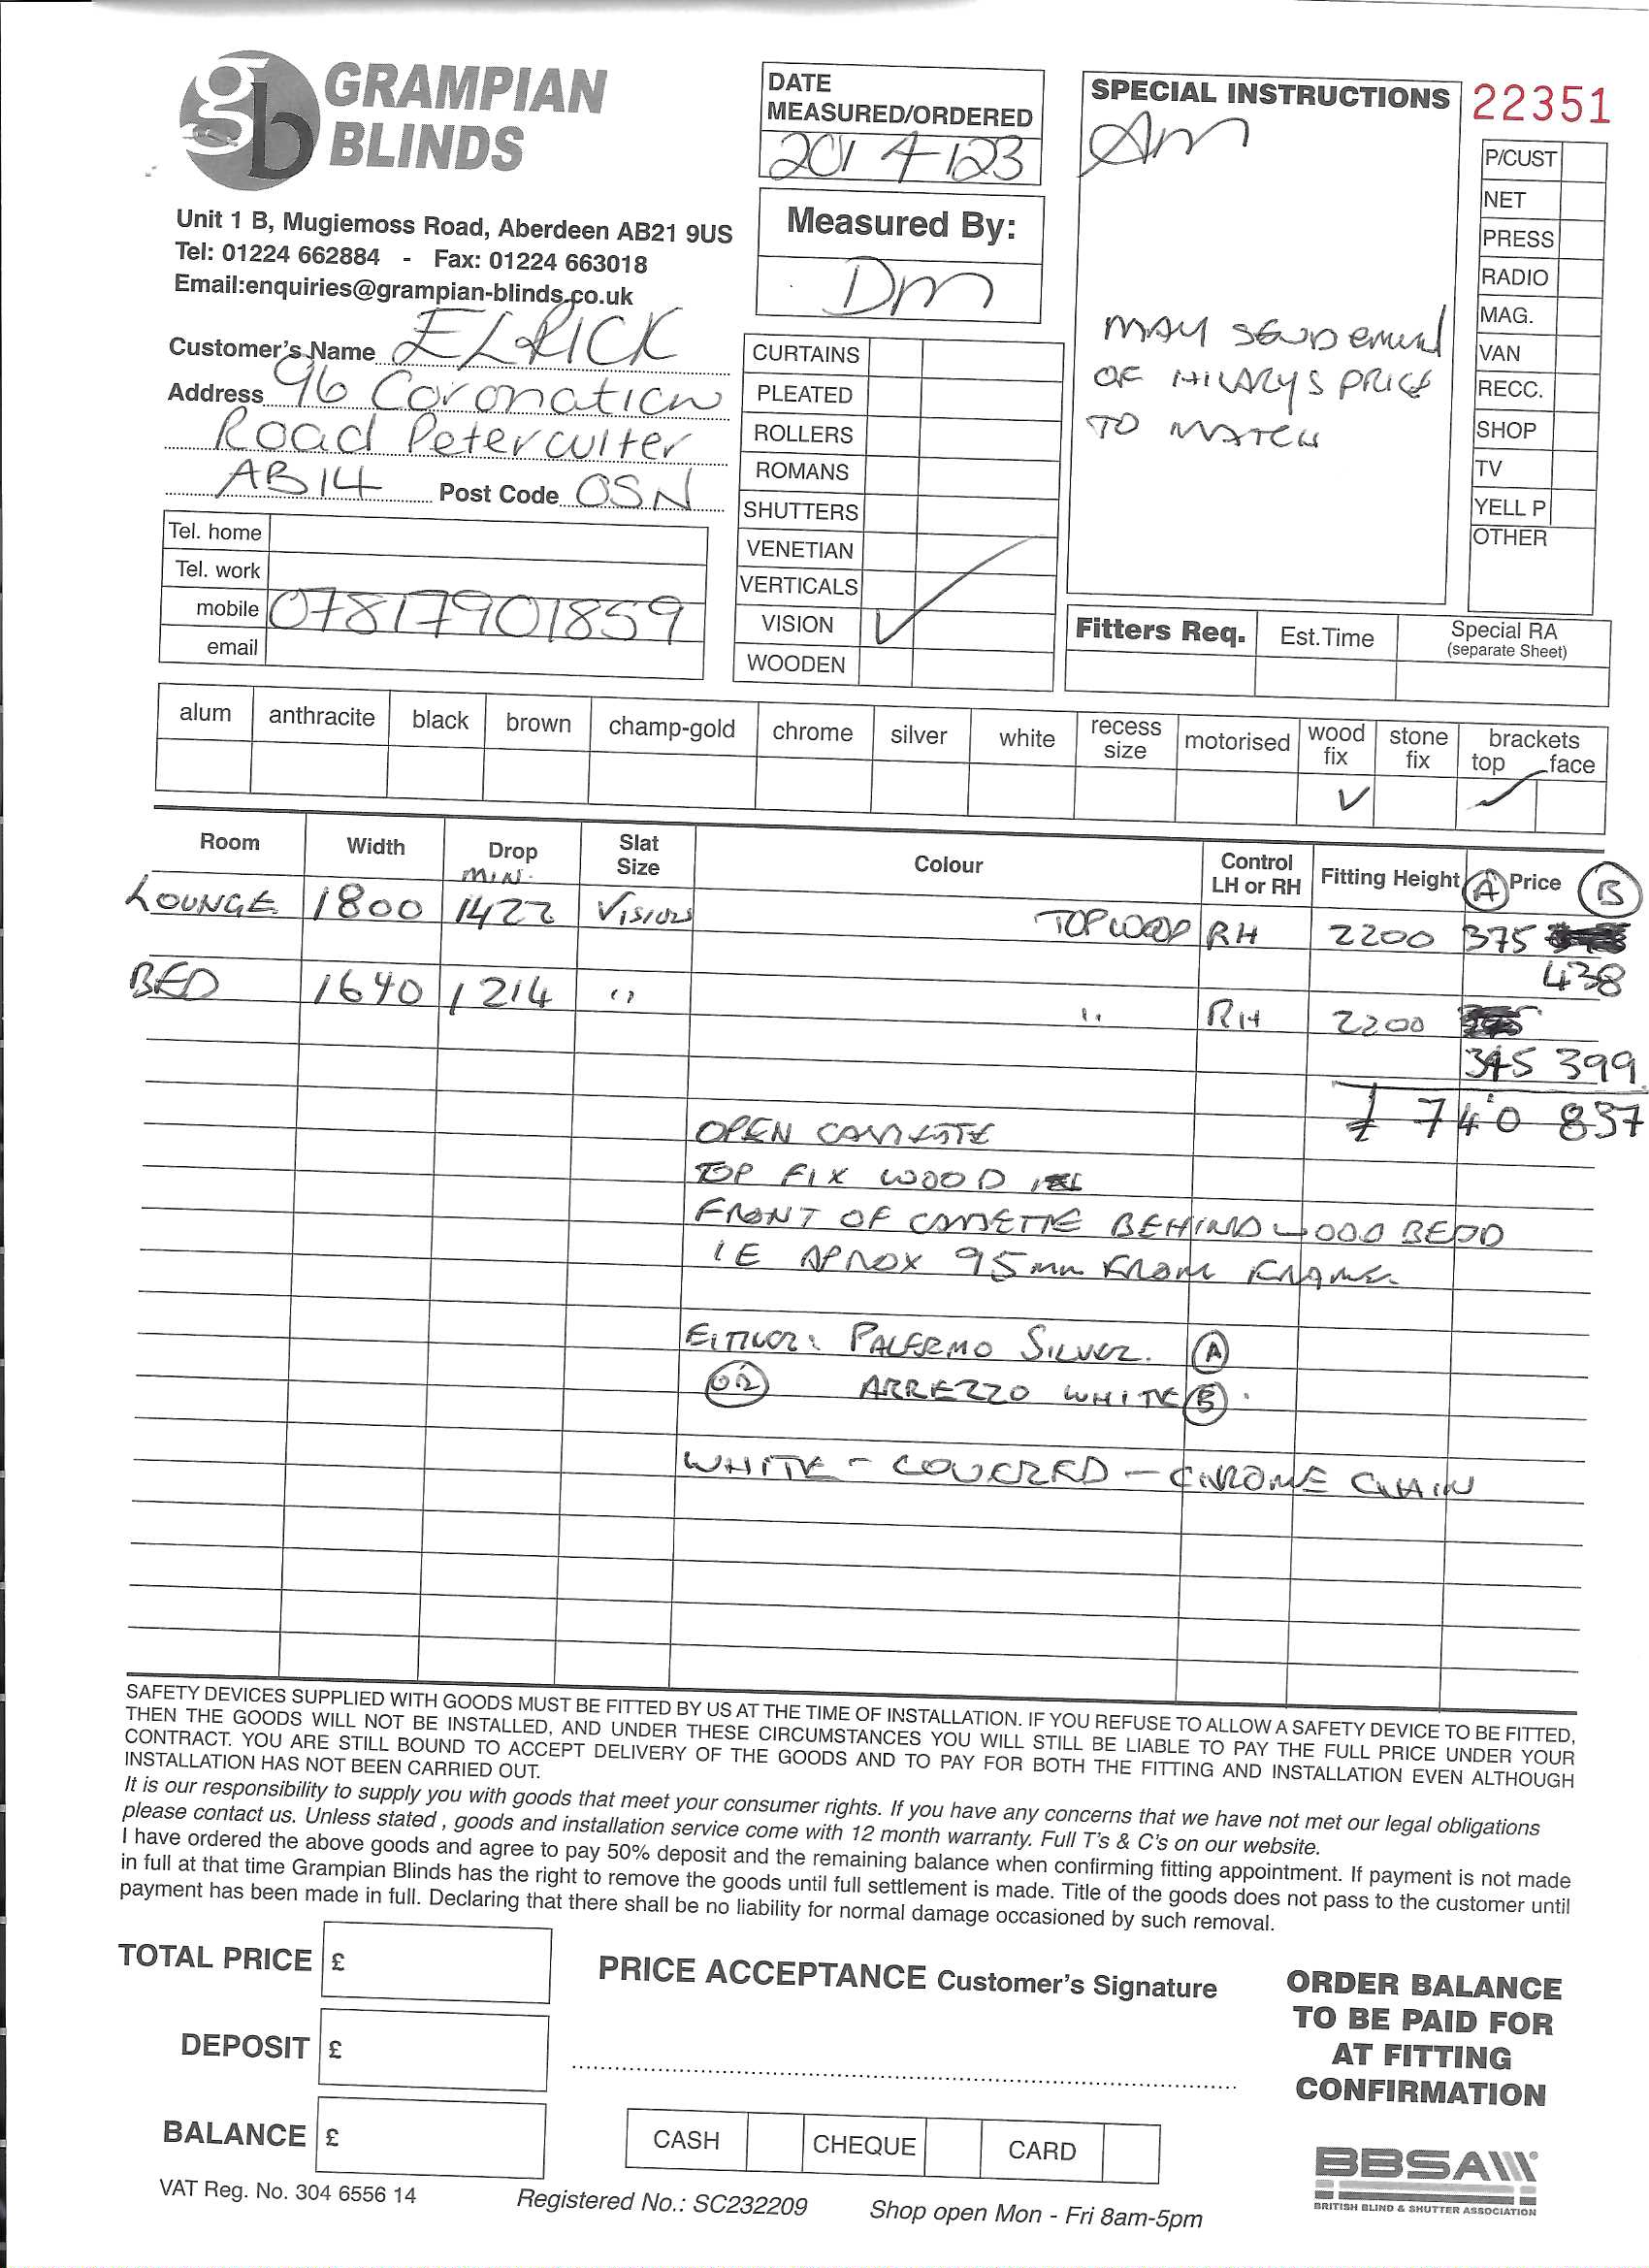 gb GRAMPIAN
BLINDS
Unit 1 B, Mugiemoss Road, Aberdeen AB21 9US
Tel: 01224 662884 - Fax: 01224 663018
Email:enquiries@grampian-blinds.co.uk
Customer's Name ELRICK
Address 96 Coronation
Road Peterculter
AB14 Post Code 0SN
Tel. home
Tel. work
mobile 07817901859
email
DATE
MEASURED/ORDERED
20/4/23
Measured By:
DM
CURTAINS
PLEATED
ROLLERS
ROMANS
SHUTTERS
VENETIAN
VERTICALS
VISION ✓
WOODEN
SPECIAL INSTRUCTIONS
AM
MAY SEND EMAIL
OF HILARYS PRICE
TO MATCH
22351
P/CUST
NET
PRESS
RADIO
MAG.
VAN
RECC.
SHOP
TV
YELL P
OTHER
Fitters Req. Est.Time Special RA
(separate Sheet)
alum anthracite black brown champ-gold chrome silver white recess size motorised wood fix stone fix brackets top face
✓ ✓
Room Width Drop Slat Size Colour Control LH or RH Fitting Height A Price B
MIN.
LOUNGE 1800 1422 VISION TOP WOOD RH 2200 375
438
BED 1640 1214 " " RH 2200
345 399
£ 740 837
OPEN CASSETTE
TOP FIX WOOD
FRONT OF CASSETTE BEHIND WOOD BEAD
IE APROX 95mm FROM FRAME.
EITHER: PALERMO SILVER. A
OR ARREZZO WHITE B.
WHITE - COVERED - CHROME CHAIN
SAFETY DEVICES SUPPLIED WITH GOODS MUST BE FITTED BY US AT THE TIME OF INSTALLATION. IF YOU REFUSE TO ALLOW A SAFETY DEVICE TO BE FITTED,
THEN THE GOODS WILL NOT BE INSTALLED, AND UNDER THESE CIRCUMSTANCES YOU WILL STILL BE LIABLE TO PAY THE FULL PRICE UNDER YOUR
CONTRACT. YOU ARE STILL BOUND TO ACCEPT DELIVERY OF THE GOODS AND TO PAY FOR BOTH THE FITTING AND INSTALLATION EVEN ALTHOUGH
INSTALLATION HAS NOT BEEN CARRIED OUT.
It is our responsibility to supply you with goods that meet your consumer rights. If you have any concerns that we have not met our legal obligations
please contact us. Unless stated , goods and installation service come with 12 month warranty. Full T's & C's on our website.
I have ordered the above goods and agree to pay 50% deposit and the remaining balance when confirming fitting appointment. If payment is not made
in full at that time Grampian Blinds has the right to remove the goods until full settlement is made. Title of the goods does not pass to the customer until
payment has been made in full. Declaring that there shall be no liability for normal damage occasioned by such removal.
TOTAL PRICE £
DEPOSIT £
BALANCE £
PRICE ACCEPTANCE Customer's Signature
CASH CHEQUE CARD
ORDER BALANCE
TO BE PAID FOR
AT FITTING
CONFIRMATION
BBSA
BRITISH BLIND & SHUTTER ASSOCIATION
VAT Reg. No. 304 6556 14 Registered No.: SC232209 Shop open Mon - Fri 8am-5pm